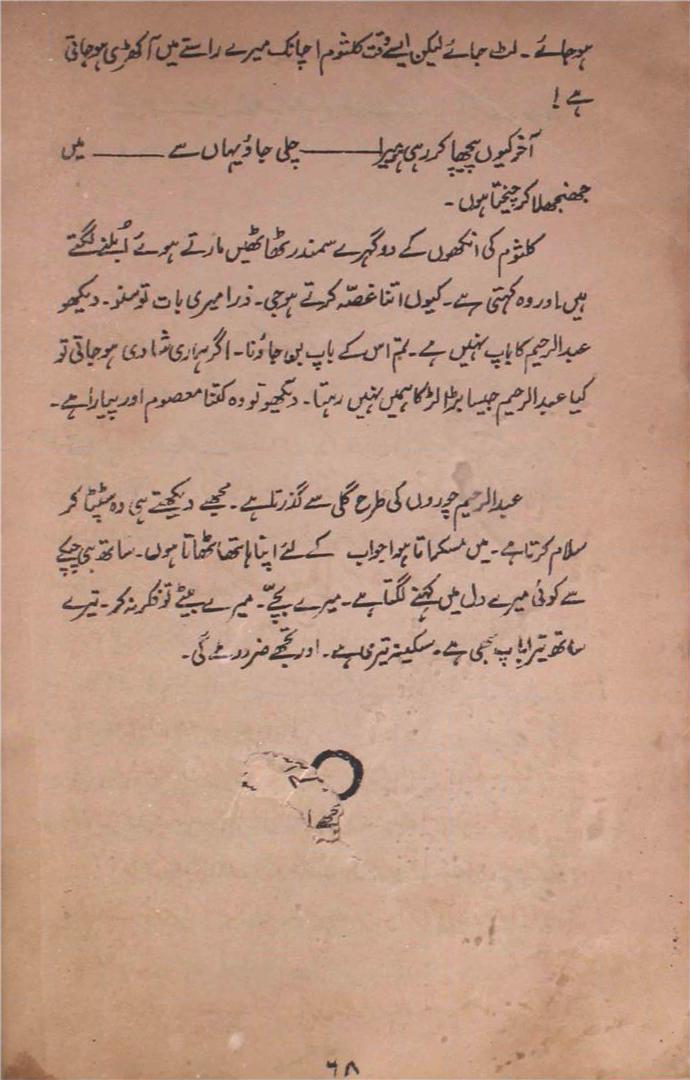 ہوجائے ۔ لٹ جائے لیکن ایسے وقت کلثوم اچانک میرے راستے میں آکھڑی ہوجاتی
ہے !
آخر کیوں پیچھا کر رہی ہو میرا ——— چلی جاؤ یہاں سے ——— میں
جھنجھلا کر چیختا ہوں ۔
کلثوم کی انکھوں کے دو گہرے سمندر ٹھاٹھیں مارتے ہوئے اُبلنے لگتے
ہیں اور وہ کہتی ہے ۔ کیوں اتنا غصّہ کرتے ہو جی ۔ ذرا میری بات تو سنو ۔ دیکھو
عبدالرحیم کا باپ نہیں ہے ۔ تم اس کے باپ بن جاؤنا ۔ اگر ہماری شادی ہوجاتی تو
کیا عبدالرحیم جیسا بڑا لڑکا ہمیں نہیں رہتا ۔ دیکھو تو وہ کتنا معصوم اور پیارا ہے ۔
عبدالرحیم چوروں کی طرح گلی سے گذرتا ہے ۔ مجھے دیکھتے ہی وہ سٹپٹا کر
سلام کرتا ہے ۔ میں مسکراتا ہوا جواب کے لئے اپنا ہاتھ اٹھاتا ہوں ۔ ساتھ ہی چپکے
سے کوئی میرے دل میں کہنے لگتا ہے ۔ میرے بچّے ۔ میرے بیٹے تو فکر نہ کر ۔ تیرے
ساتھ تیرا باپ بھی ہے ۔ سکینہ تیری ہے ۔ اور تجھے ضرور ملے گی ۔
۶۸